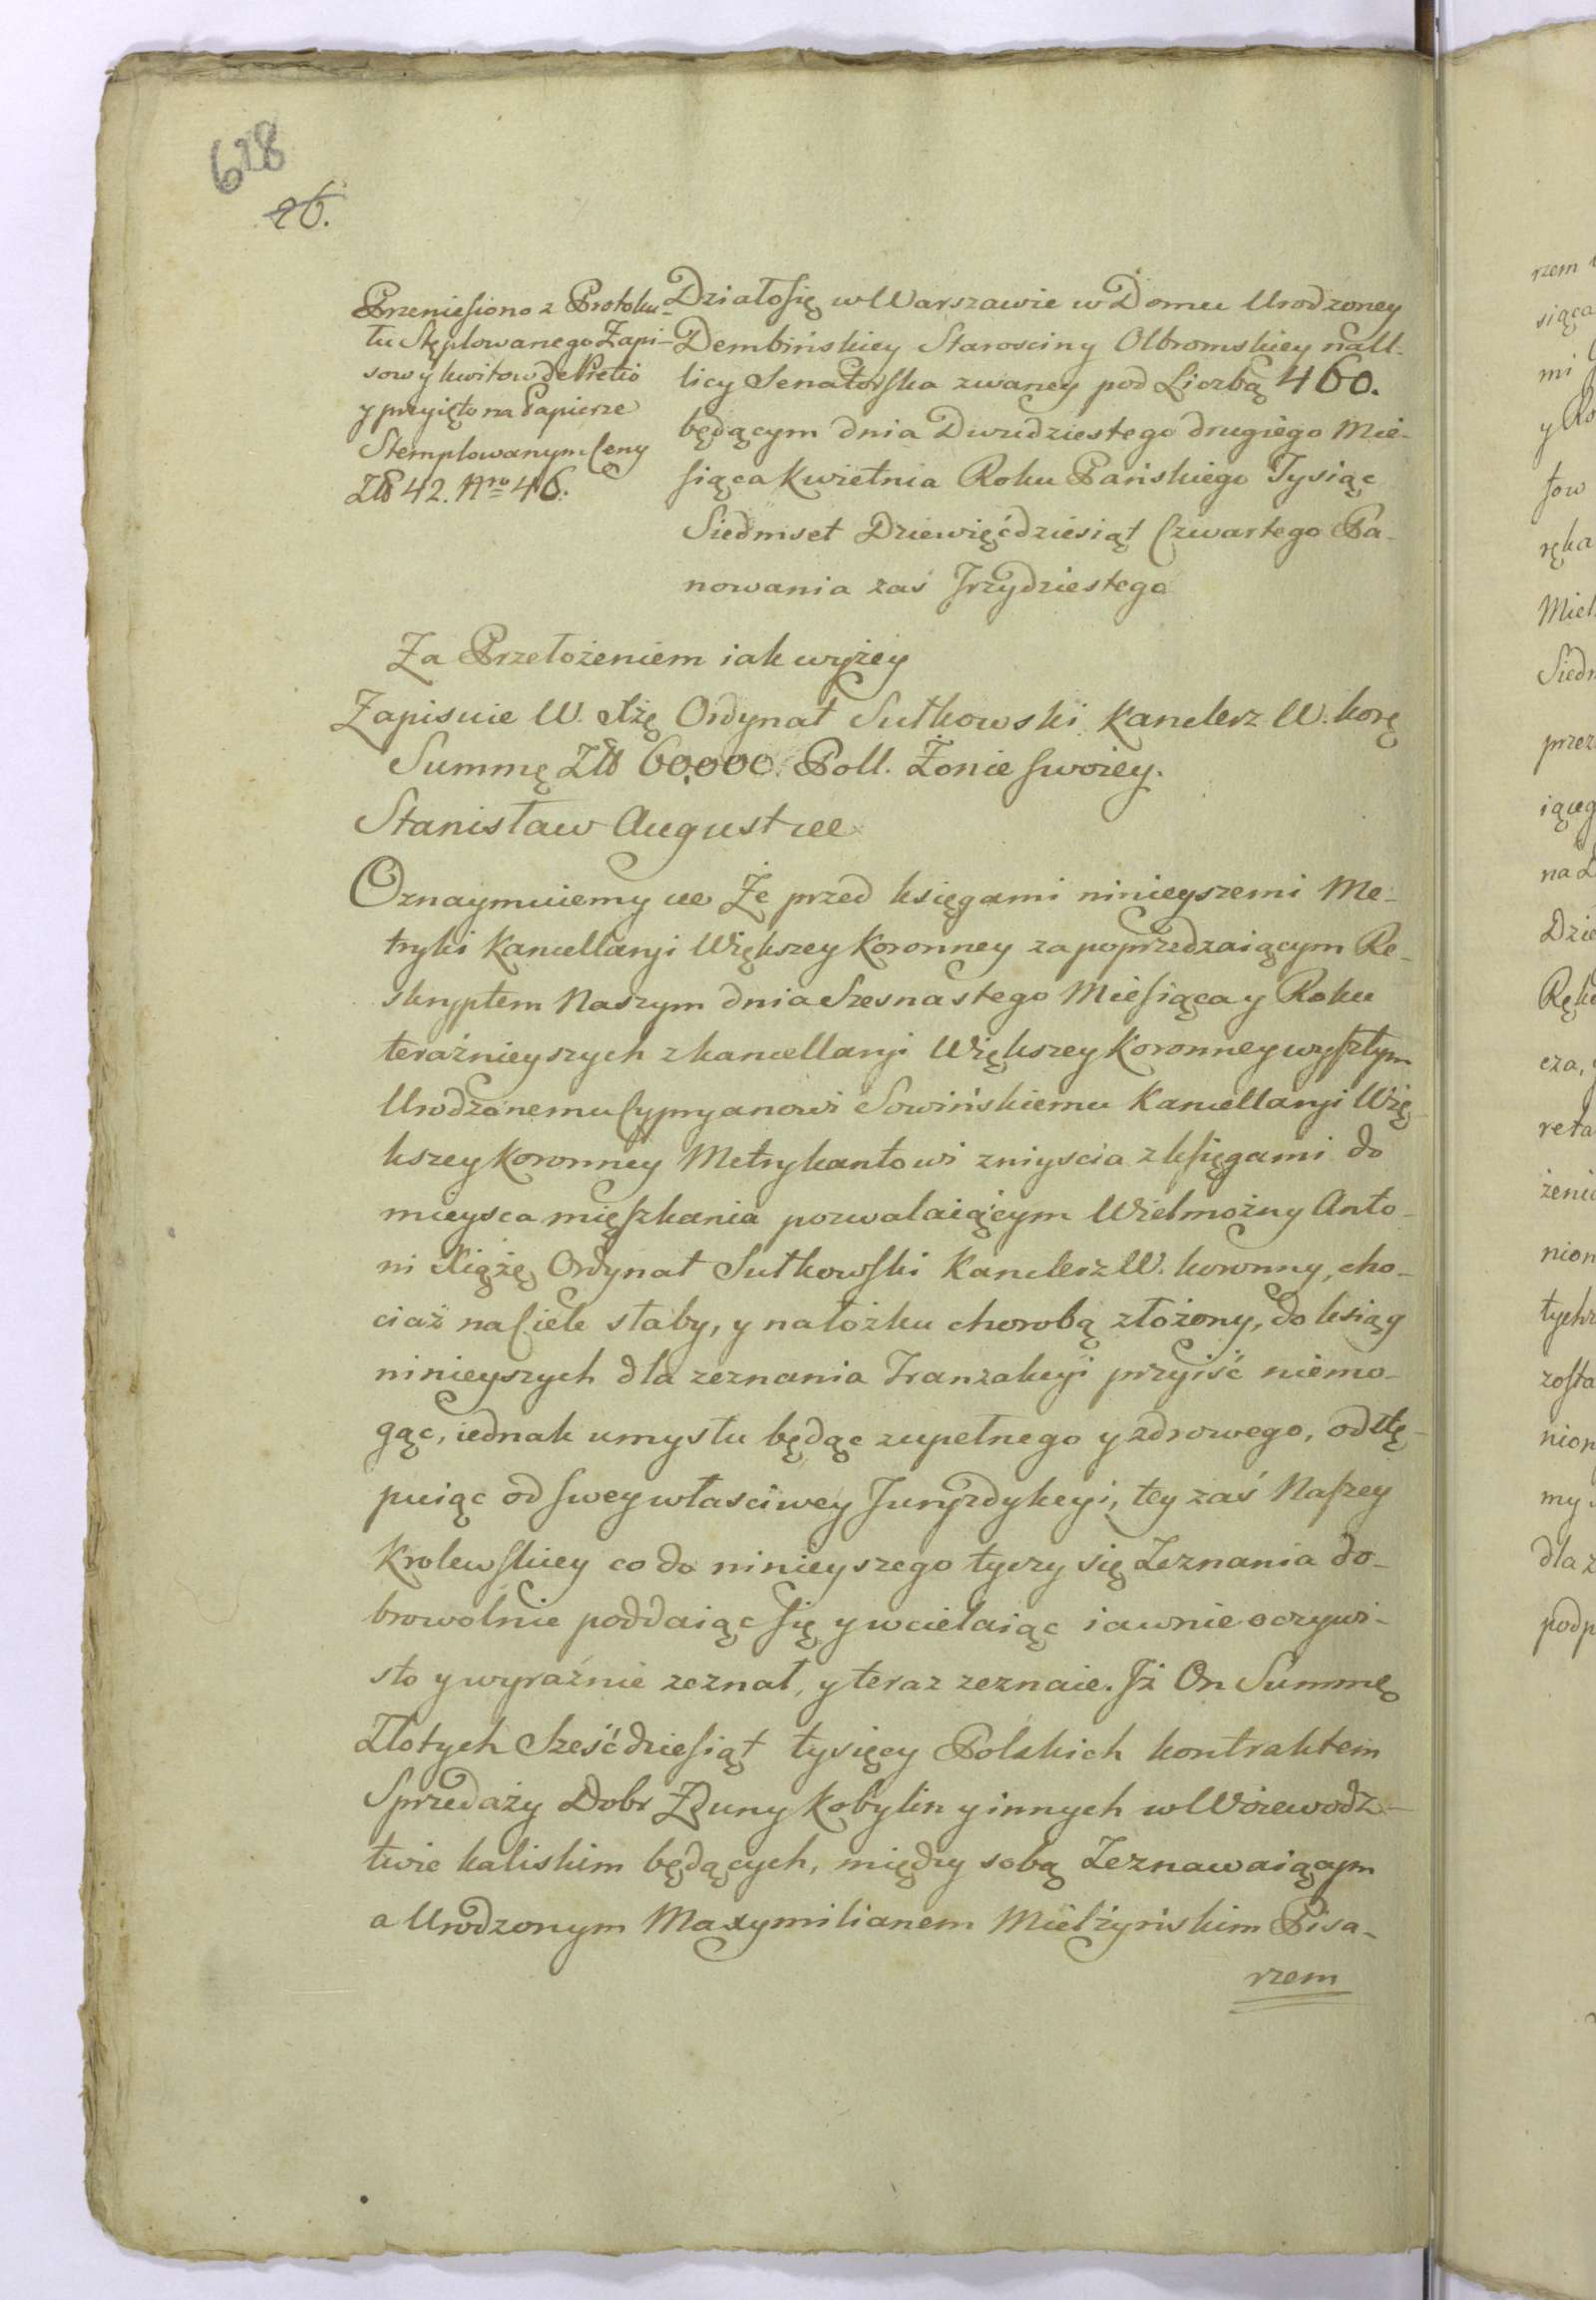 618
26.
Przeniesiono z Protoku-
łu Stęplowanego Zapi-
sow y kwitow de Pretio
y przyięto na Papierze
Stemplowanym Ceny
Zł 42. Nro 46.
Działo się w Warszawie w Domu Urodzoney
Dembińskiey Starosciny Olbromskiey na Ul-
licy Senatorska zwaney pod Liczbą 460.
będącym dnia Dwudziestego drugiego Mie-
siąca Kwietnia Roku Pańskiego Tysiąc
Siedmset Dziewięćdziesiąt Czwartego Pa-
nowania zaś Trzydziestego
Za Przełożeniem iak wyżey
Zapisuie W. Xżę Ordynat Sułkowski Kanclerz W. korẹ
Summę Zł 60,000. Poll. Żonie swoiey.
Stanisław August etc
Oznaymuiemy etc Że przed księgami ninieyszemi Me-
tryki Kancellaryi Większey Koronney za poprzedzaiącym Re-
skryptem Naszym dnia Szesnastego Miesiąca y Roku
teraźnieyszych z kancellaryi Większey Koronney wyszłym
Urodzonemu Cypryanowi Sowińskiemu Kancellaryi Wię
kszey Koronney Metrykantowi zniyscia z księgami do
mieysca mięszkania pozwalaiącym Wielmożny Anto-
ni Xiążę Ordynat Sułkowski Kanclerz W. koronny, cho-
ciaż na Ciele słaby, y na łożku chorobą złożony, do ksiąg
ninieyszych dla zeznania Tranzakcyi przyiść niemo-
gąc, iednak umysłu będąc zupełnego y zdrowego, odstę-
puiąc od swey własciwey Juryzdykcyi, tey zaś Naszey
Krolewskiey co do ninieyszego tyczy się Zeznania do-
browolnie poddaiąc się y wcielaiąc iawnie oczywi-
sto y wyraźnie zeznał, y teraz zeznaie. Iż On Summę
Złotych Sześćdziesiąt tysięcy Polskich kontraktem
Sprzedaży Dobr Zduny Kobylin y innych w Woiewodz-
twie kaliskim będących, między sobą Zeznawaiącym
a Urodzonym Maxymilianem Mielżyńskim Pisa-
rzem
rzem
siąca
mi
y Ro
tow
ręka
Miel
Siedm
przez
iąceg
na D
Dzie
Ręk
cza,
reta
żeni
nion
tychz
zosta
nion
my
dla z
podp